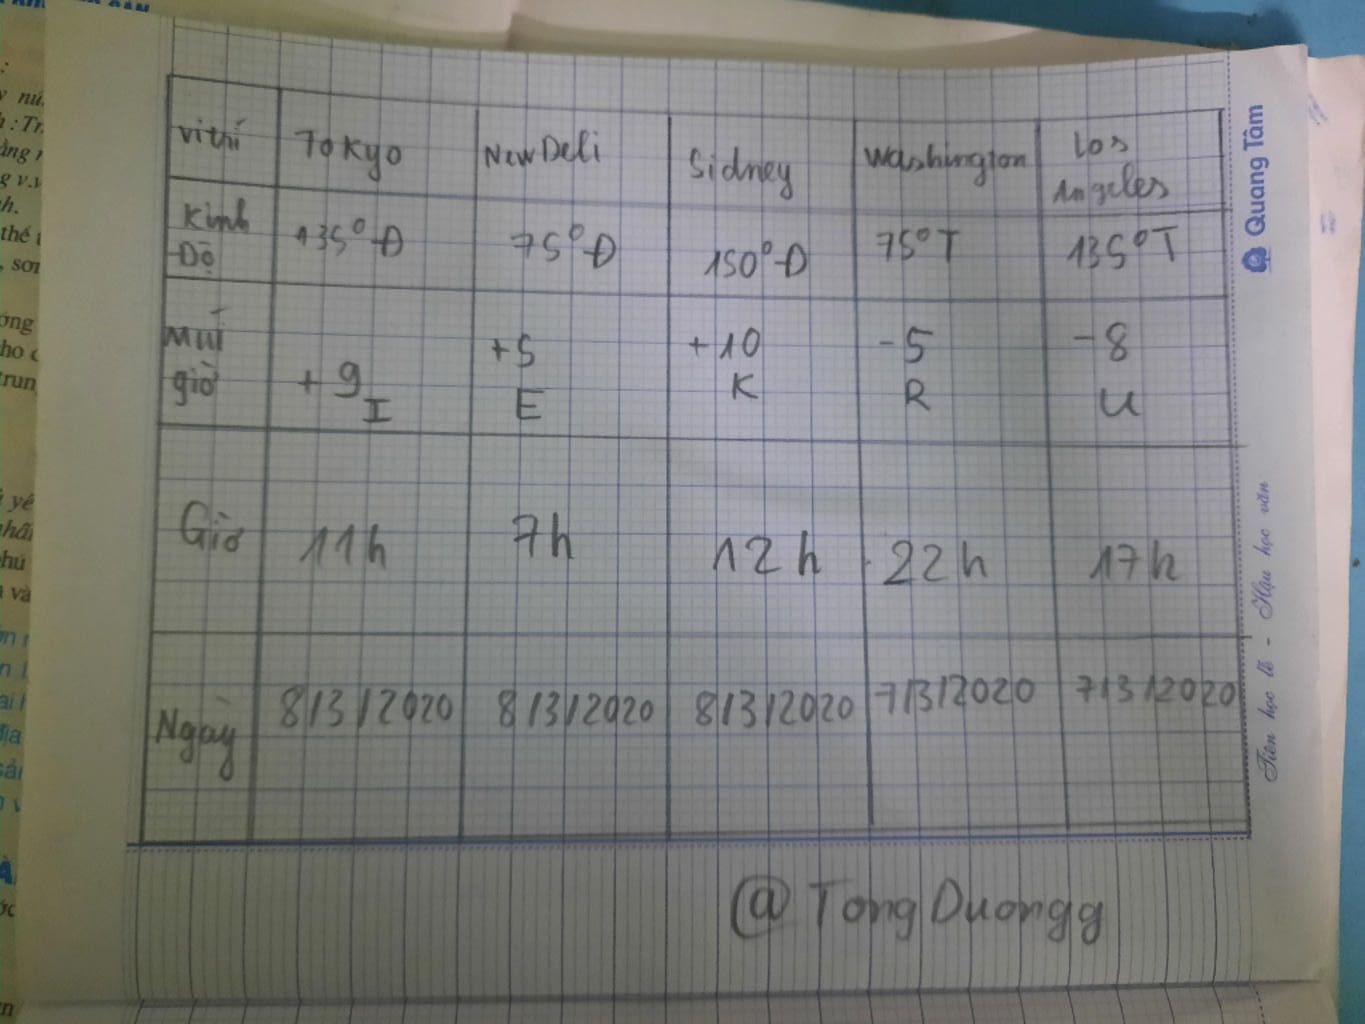 vị trí Tokyo New Deli Sidney Washington Los Angeles
Kinh Độ 135°Đ 75°Đ 150°Đ 75°T 135°T
Múi giờ +9 I +5 E +10 K -5 R -8 U
Giờ 11h 7h 12h 22h 17h
Ngày 8/3/2020 8/3/2020 8/3/2020 7/3/2020 7/3/2020
@TongDuongg
Quang Tâm
Tiên học lễ - Hậu học văn